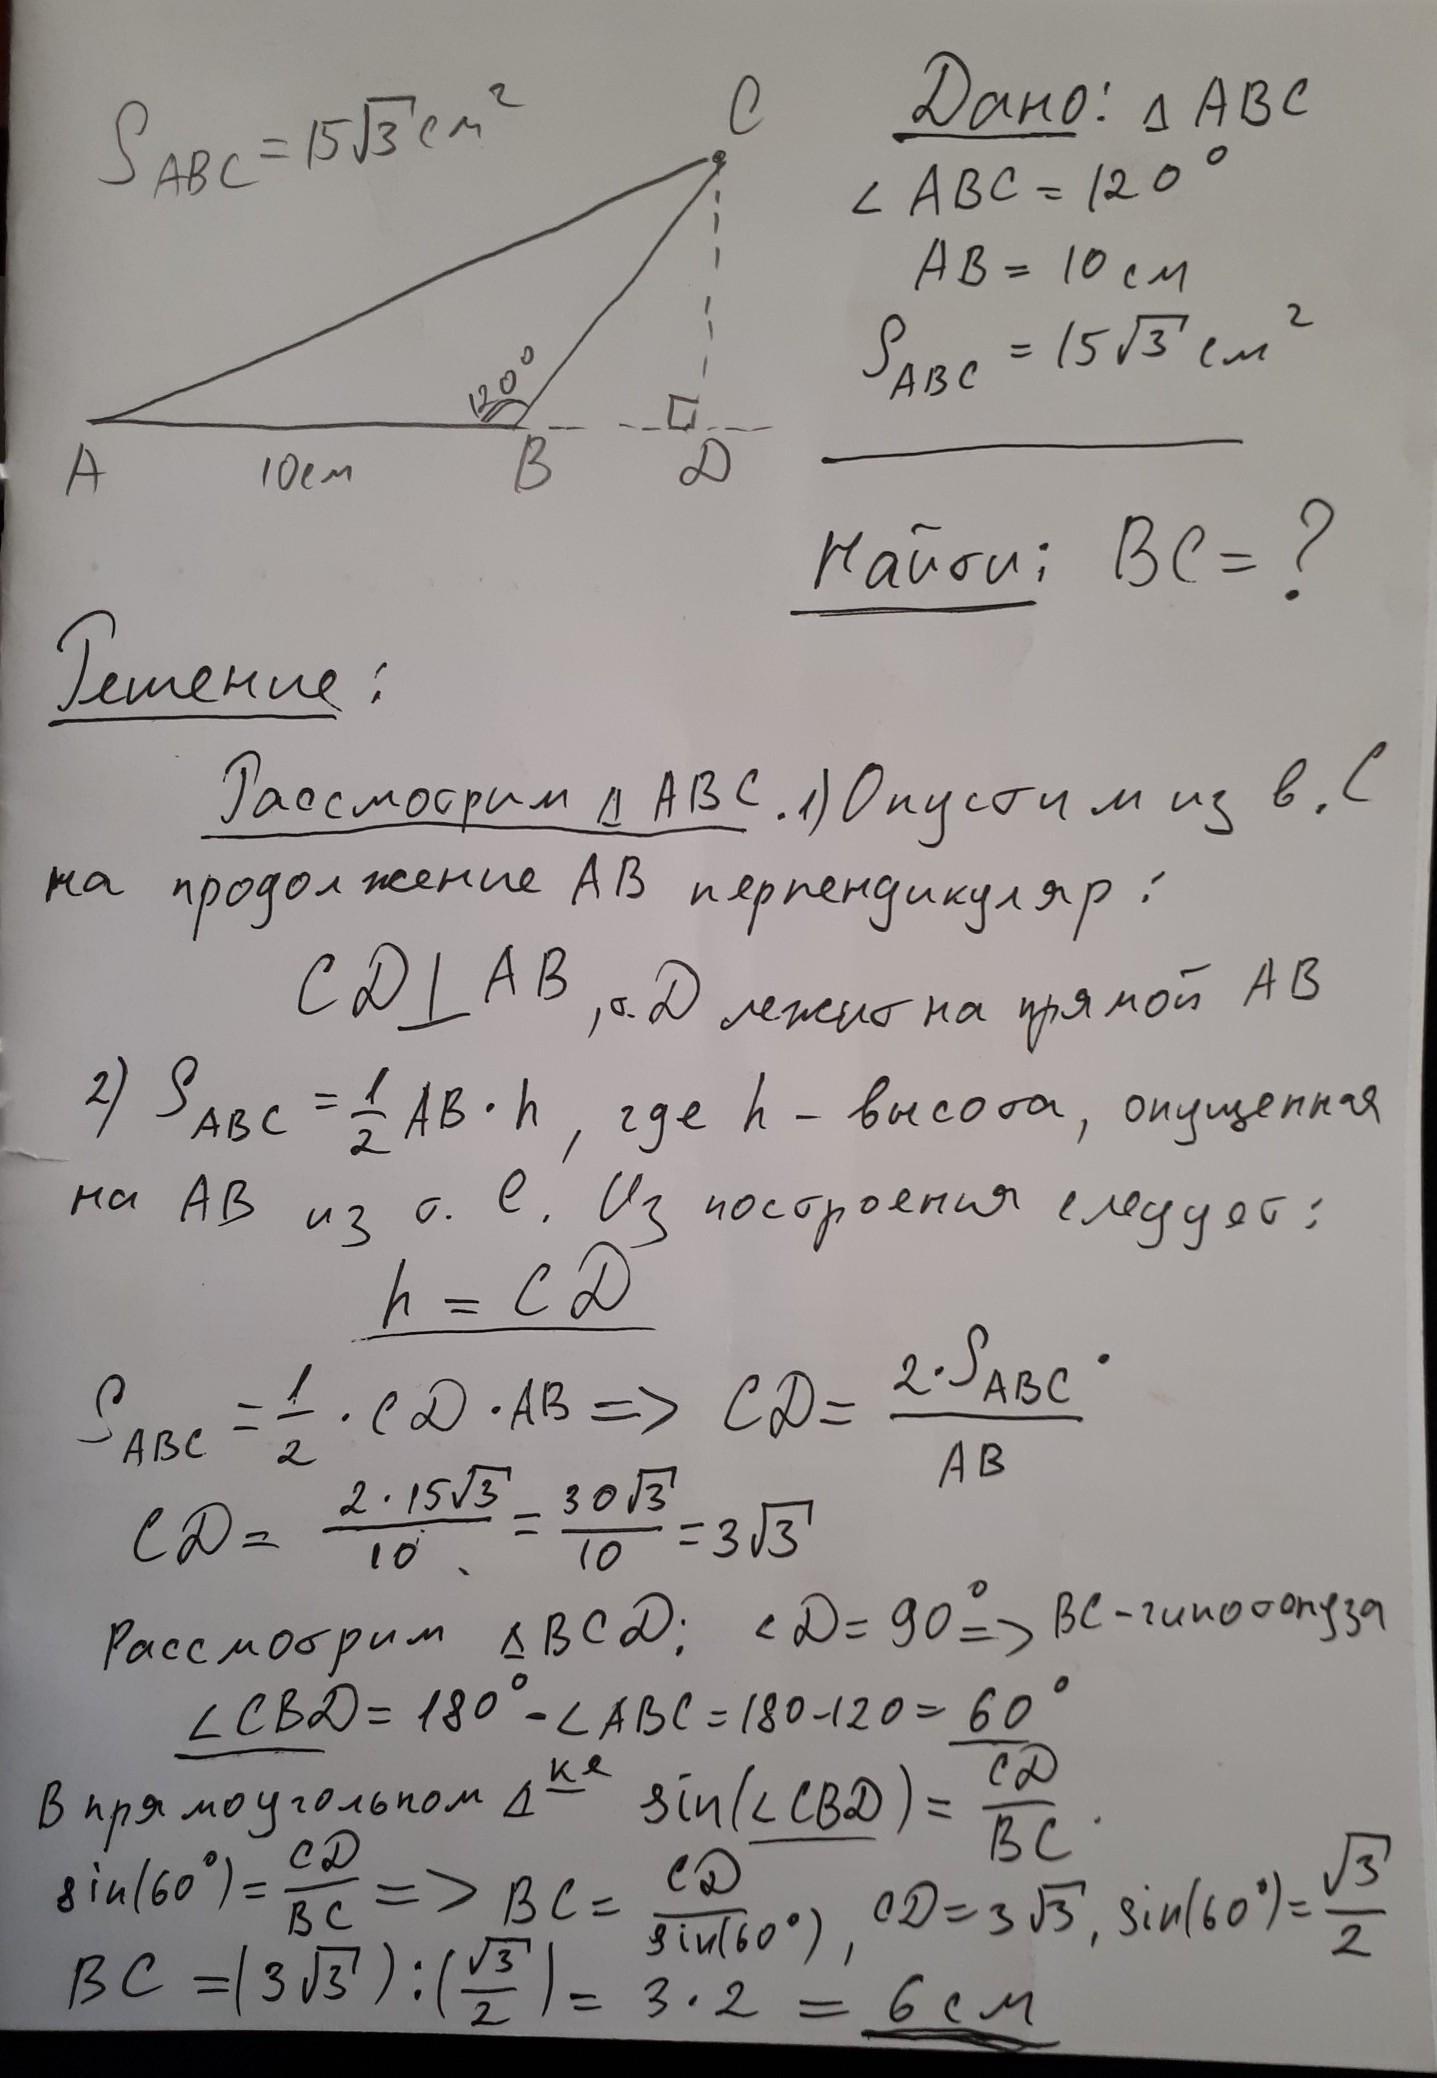 S ABC = 15√3 см²
C
120°
A
10см
B
D
Дано: Δ ABC
∠ ABC = 120°
AB = 10 см
S ABC = 15√3 см²
Найти: BC = ?
Решение:
Рассмотрим Δ ABC. 1) Опустим из в. C
на продолжение AB перпендикуляр:
CD ⊥ AB, т. D лежит на прямой AB
2) S ABC = 1/2 AB · h, где h – высота, опущенная
на AB из т. C. Из построения следует:
h = CD
S ABC = 1/2 · CD · AB => CD = 2·S ABC / AB
CD = 2·15√3 / 10 = 30√3 / 10 = 3√3
Рассмотрим Δ BCD; ∠D = 90° => BC - гипотенуза
∠CBD = 180° - ∠ABC = 180-120 = 60°
В прямоугольном Δ ке sin(∠CBD) = CD / BC.
sin(60°) = CD / BC => BC = CD / sin(60°), CD = 3√3, sin(60°) = √3 / 2
BC = (3√3) : (√3 / 2) = 3·2 = 6 см